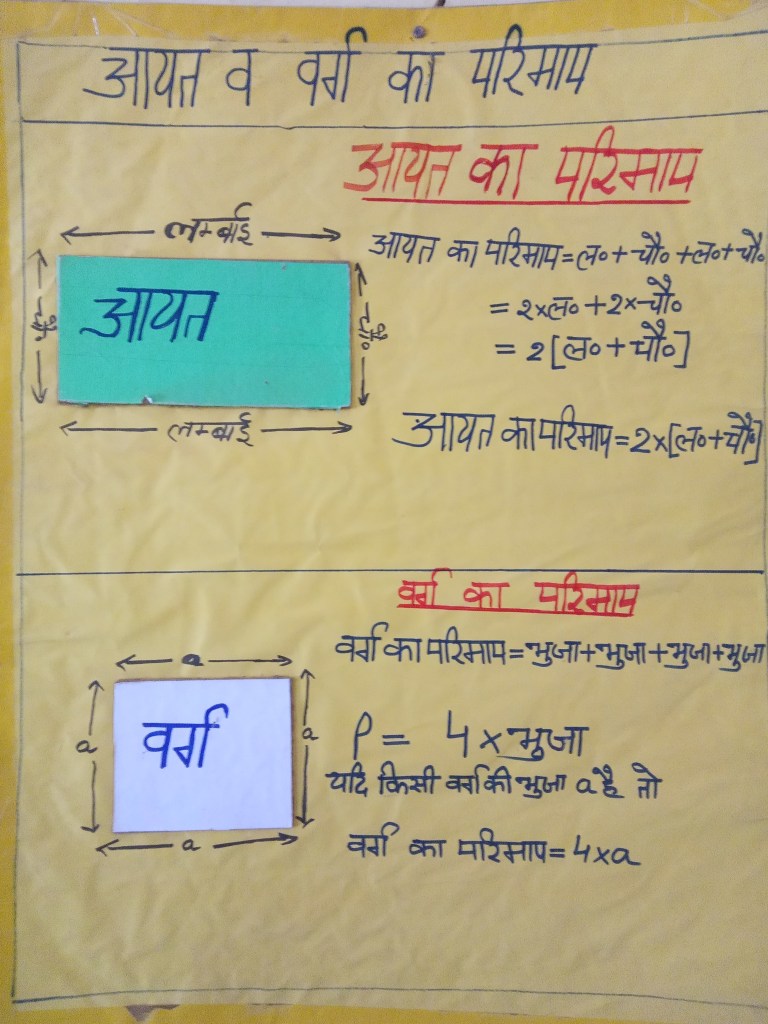 आयत व वर्ग का परिमाप
आयत का परिमाप
लम्बाई
आयत का परिमाप=ल०+चौ०+ल०+चौ०
चौ०
आयत
चौ०
=2×ल०+2×चौ०
=2[ल०+चौ०]
लम्बाई
आयत का परिमाप=2×[ल०+चौ०]
वर्ग का परिमाप
वर्ग का परिमाप=भुजा+भुजा+भुजा+भुजा
a
a
वर्ग
a
P= 4×भुजा
यदि किसी वर्ग की भुजा a है तो
a
वर्ग का परिमाप=4×a